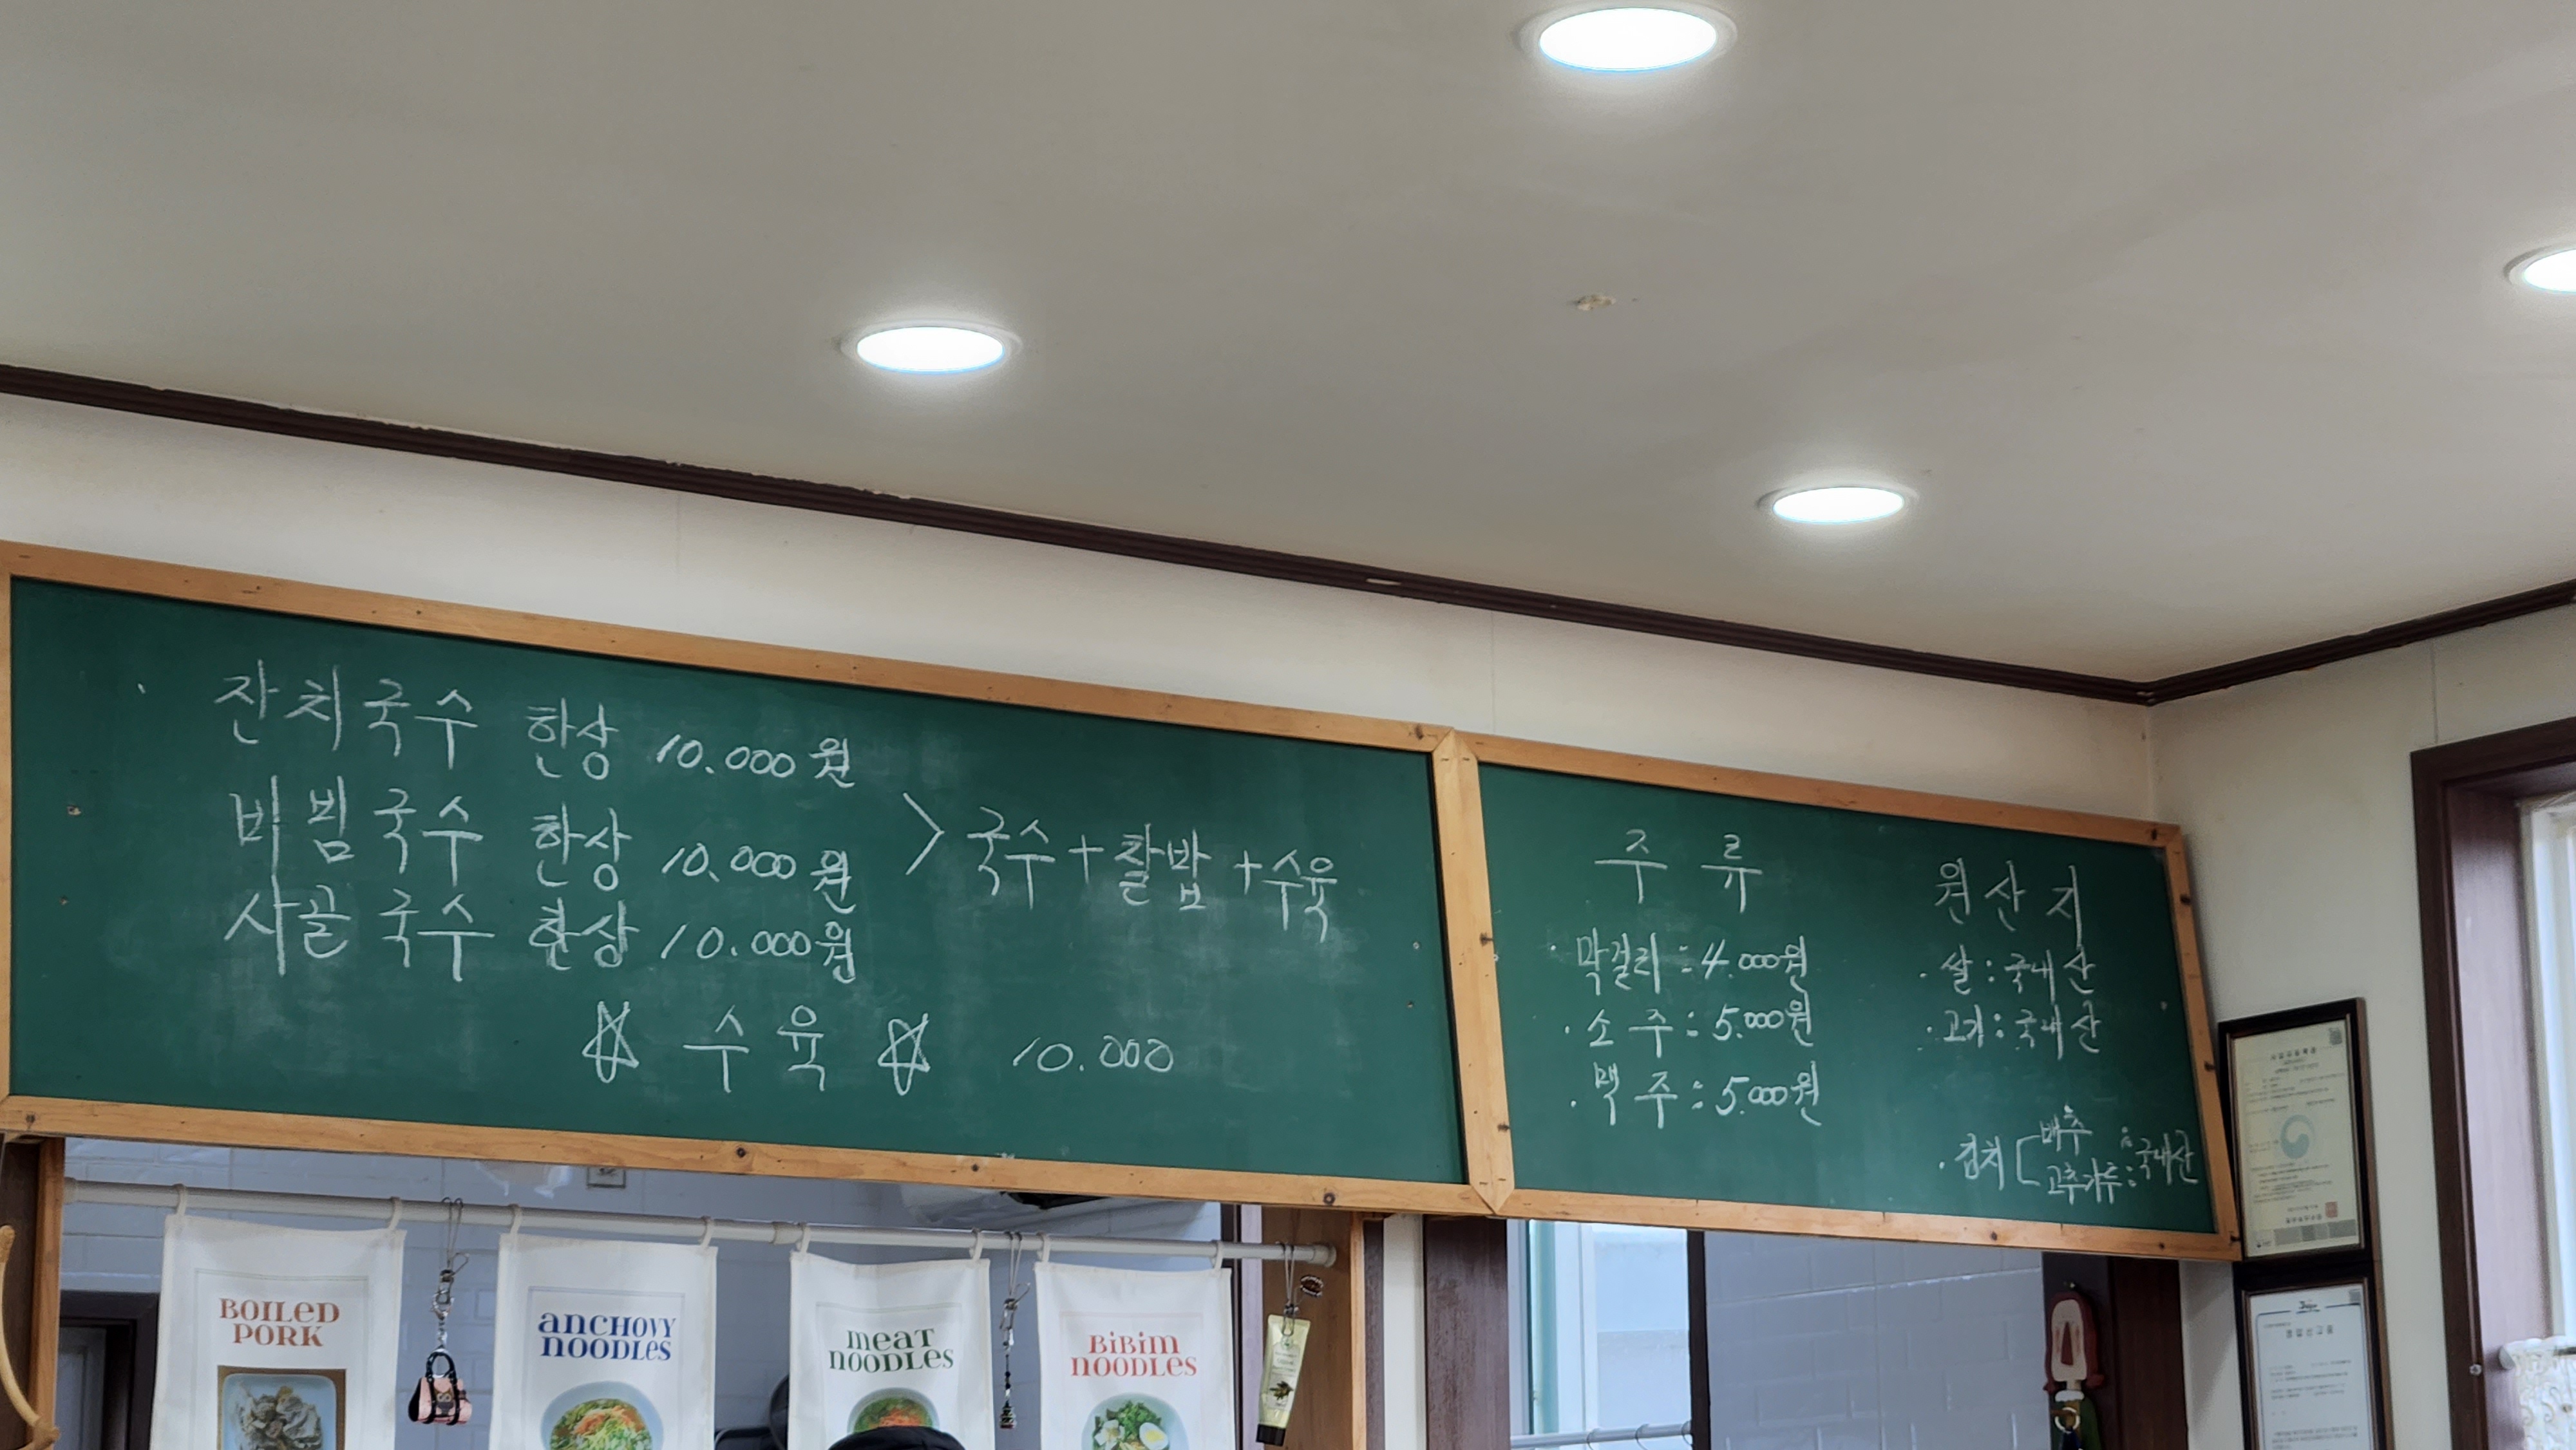 잔치국수 한상 10.000원
비빔국수 한상 10.000원
사골국수 한상 10.000원
> 국수+찰밥+수육
☆ 수육 ☆ 10.000
주류
· 막걸리 : 4.000원
· 소주 : 5.000원
· 맥주 : 5.000원
원산지
· 쌀 : 국내산
· 고기 : 국내산
· 김치 [ 배추 : 국내산
고추가루 :
BOILED
PORK
ANCHOVY
NOODLES
MEAT
NOODLES
BIBIM
NOODLES